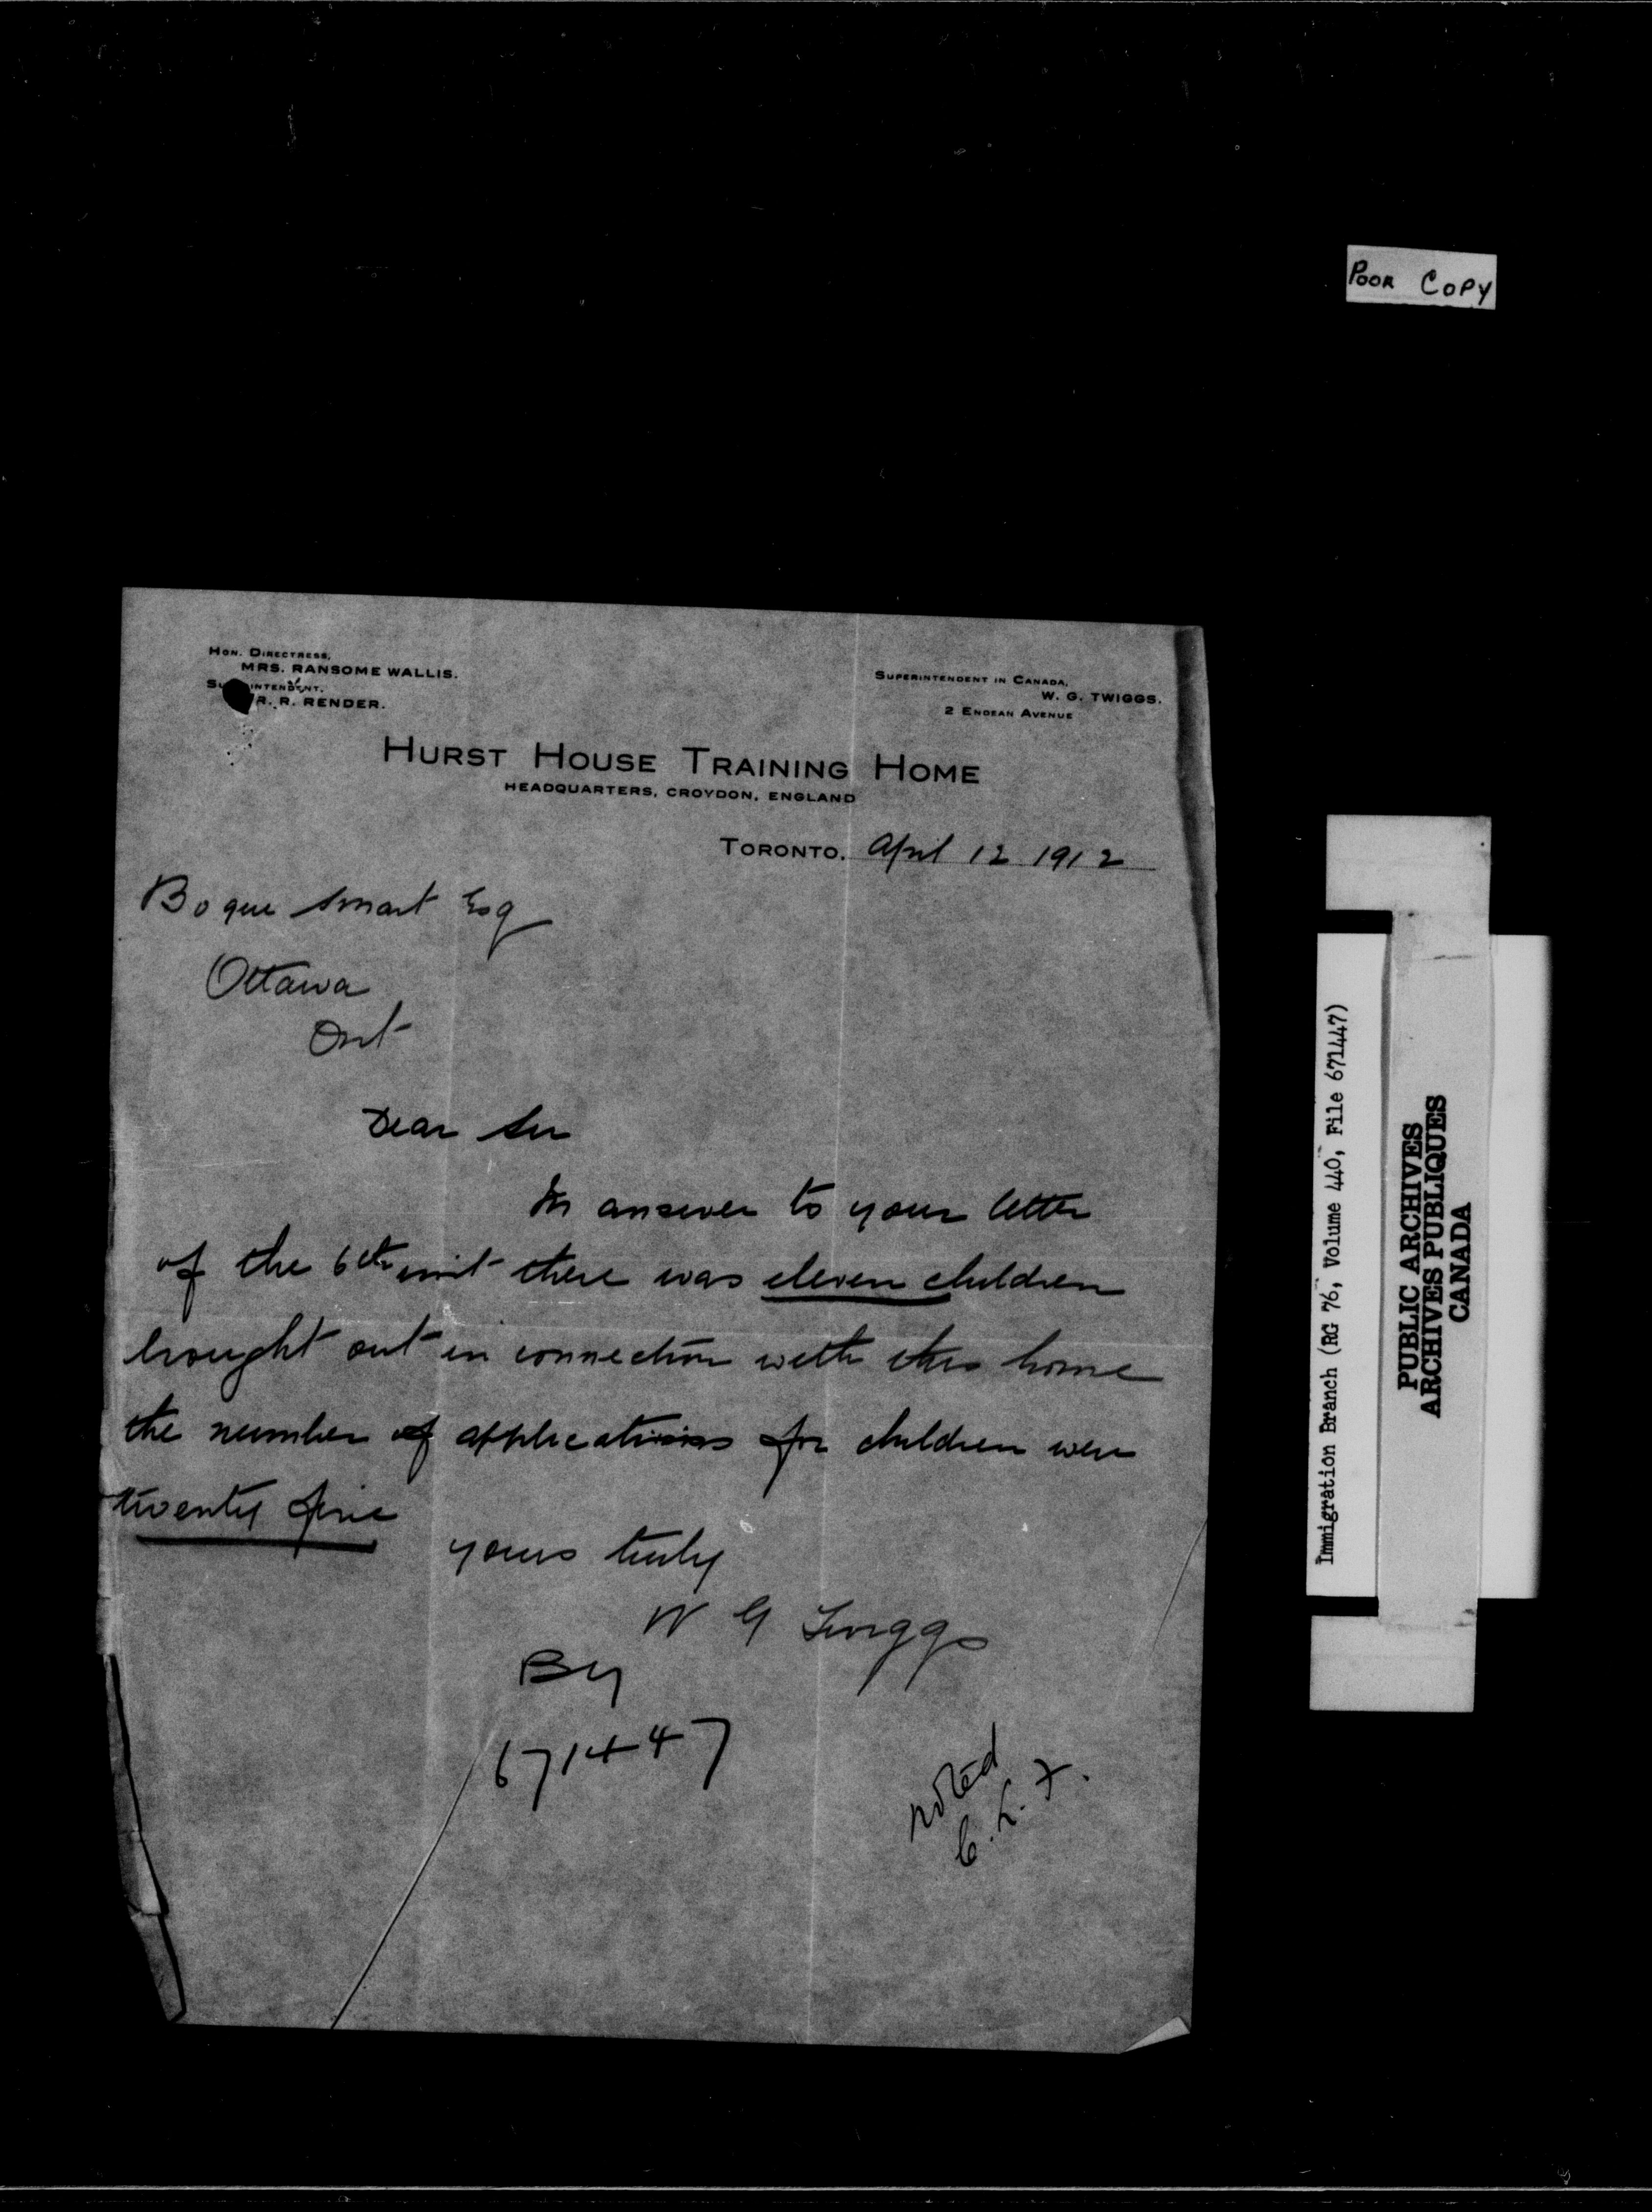 POOR COPY
HON. DIRECTRESS,
MRS. RANSOME WALLIS.
SU INTENDENT,
R. R. RENDER.
SUPERINTENDENT IN CANADA,
W. G. TWIGGS.
2 ENDEAN AVENUE
HURST HOUSE TRAINING HOME
HEADQUARTERS, CROYDON, ENGLAND
TORONTO, April 12 1912
Bogue Smart Esq
Ottawa
Ont
Dear Sir
In answer to your letter
of the 6th inst there was eleven children
brought out in connection with this home
the number of applications for children were
twenty five
yours truly
W G Twiggs
By
671447
noted
Immigration Branch (RG 76, Volume 440, File 671447)
PUBLIC ARCHIVES
ARCHIVES PUBLIQUES
CANADA